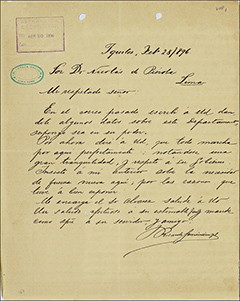 Iquitos, Feb. 28/896
Sor Dr Nicolás de Piérola
Lima
Mi respetado señor
En el correo pasado escribí á Ud. dan
dole algunos datos sobre este departamento,
supongo sea en su poder.
Por ahora diré á Ud. que todo marcha
por aquí perfectamente, notandose una
gran tranquilidad, y respeto á su Gobierno
Insisto á mi anterior sobre la
de fuerza nueva aquí, por las razones que
tuve á bien exponer
Me encarga el Sr Alvarez salude á Ud
Un saludo afectuoso á su estimable y mande
como á su servidor y amigo